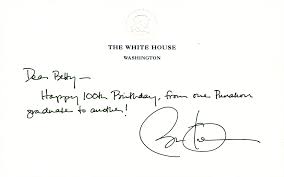 THE WHITE HOUSE
WASHINGTON
Dear Betty—
Happy 100th Birthday, from one Punahou
graduate to another!